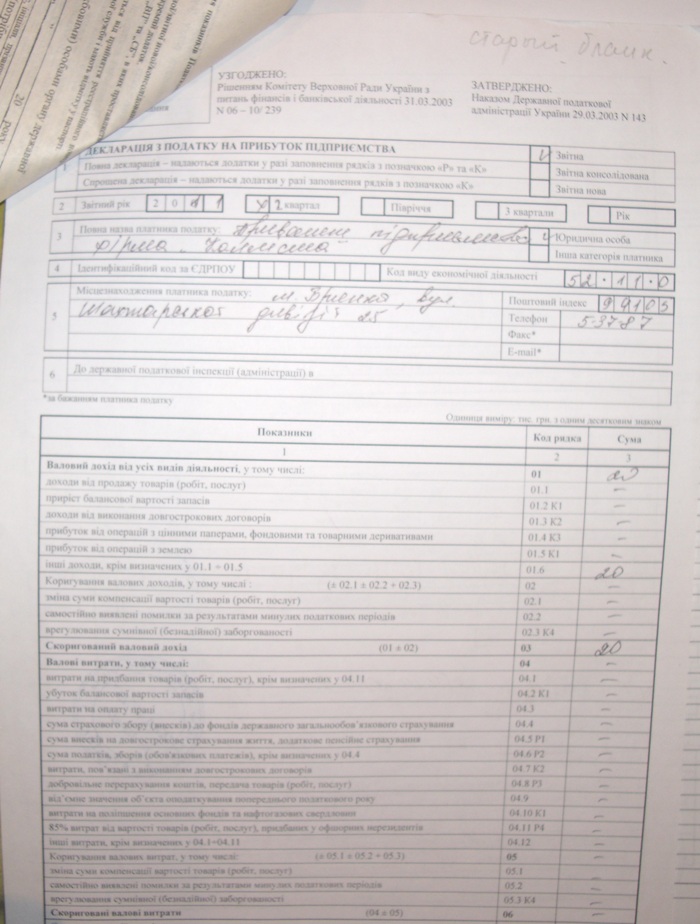 старый бланк.
УЗГОДЖЕНО:
Рішенням Комітету Верховної Ради України з
питань фінансів і банківської діяльності 31.03.2003
N 06 – 10/ 239
ЗАТВЕРДЖЕНО:
Наказом Державної податкової
адміністрації України 29.03.2003 N 143
1 ДЕКЛАРАЦІЯ З ПОДАТКУ НА ПРИБУТОК ПІДПРИЄМСТВА V Звітна
Повна декларація – надаються додатки у разі заповнення рядків з позначкою «Р» та «К» Звітна консолідована
Спрощена декларація – надаються додатки у разі заповнення рядків з позначкою «К» Звітна нова
2 Звітний рік 2 0 1 1 V квартал Півріччя 3 квартали Рік
3 Повна назва платника податку: приватне підприємство V Юридична особа
фірма Інша категорія платника
4 Ідентифікаційний код за ЄДРПОУ Код виду економічної діяльності 52.11.0
5 Місцезнаходження платника податку: м. Брянка, вул. Поштовий індекс
дивізії 25 Телефон 5-3787
Факс*
E-mail*
6 До державної податкової інспекції (адміністрації) в
*за бажанням платника податку
Одиниця виміру: тис. грн. з одним десятковим знаком
Показники Код рядка Сума
1 2 3
Валовий дохід від усіх видів діяльності, у тому числі: 01 20
доходи від продажу товарів (робіт, послуг) 01.1 –
приріст балансової вартості запасів 01.2 К1 –
доходи від виконання довгострокових договорів 01.3 К2 –
прибуток від операцій з цінними паперами, фондовими та товарними деривативами 01.4 К3 –
прибуток від операцій з землею 01.5 К1 –
інші доходи, крім визначених у 01.1 ÷ 01.5 01.6 20
Коригування валових доходів, у тому числі : (± 02.1 ± 02.2 + 02.3) 02 –
зміна суми компенсації вартості товарів (робіт, послуг) 02.1 –
самостійно виявлені помилки за результатами минулих податкових періодів 02.2 –
врегулювання сумнівної (безнадійної) заборгованості 02.3 К4 –
Скоригований валовий дохід (01 ± 02) 03 20
Валові витрати, у тому числі: 04 –
витрати на придбання товарів (робіт, послуг), крім визначених у 04.11 04.1 –
убуток балансової вартості запасів 04.2 К1 –
витрати на оплату праці 04.3 –
сума страхового збору (внесків) до фондів державного загальнообов'язкового страхування 04.4 –
сума внесків на довгострокове страхування життя, додаткове пенсійне страхування 04.5 Р1 –
сума податків, зборів (обов'язкових платежів), крім визначених у 04.4 04.6 Р2 –
витрати, пов'язані з виконанням довгострокових договорів 04.7 К2 –
добровільне перерахування коштів, передача товарів (робіт, послуг) 04.8 Р3 –
від'ємне значення об'єкта оподаткування попереднього податкового року 04.9 –
витрати на поліпшення основних фондів та нафтогазових свердловин 04.10 К1 –
85% витрат від вартості товарів (робіт, послуг), придбаних у офшорних нерезидентів 04.11 Р4 –
інші витрати, крім визначених у 04.1÷04.11 04.12 –
Коригування валових витрат, у тому числі: (± 05.1 ± 05.2 + 05.3) 05 –
зміна суми компенсації вартості товарів (робіт, послуг) 05.1 –
самостійно виявлені помилки за результатами минулих податкових періодів 05.2 –
врегулювання сумнівної (безнадійної) заборгованості 05.3 К4 –
Скориговані валові витрати (04 ± 05) 06 –